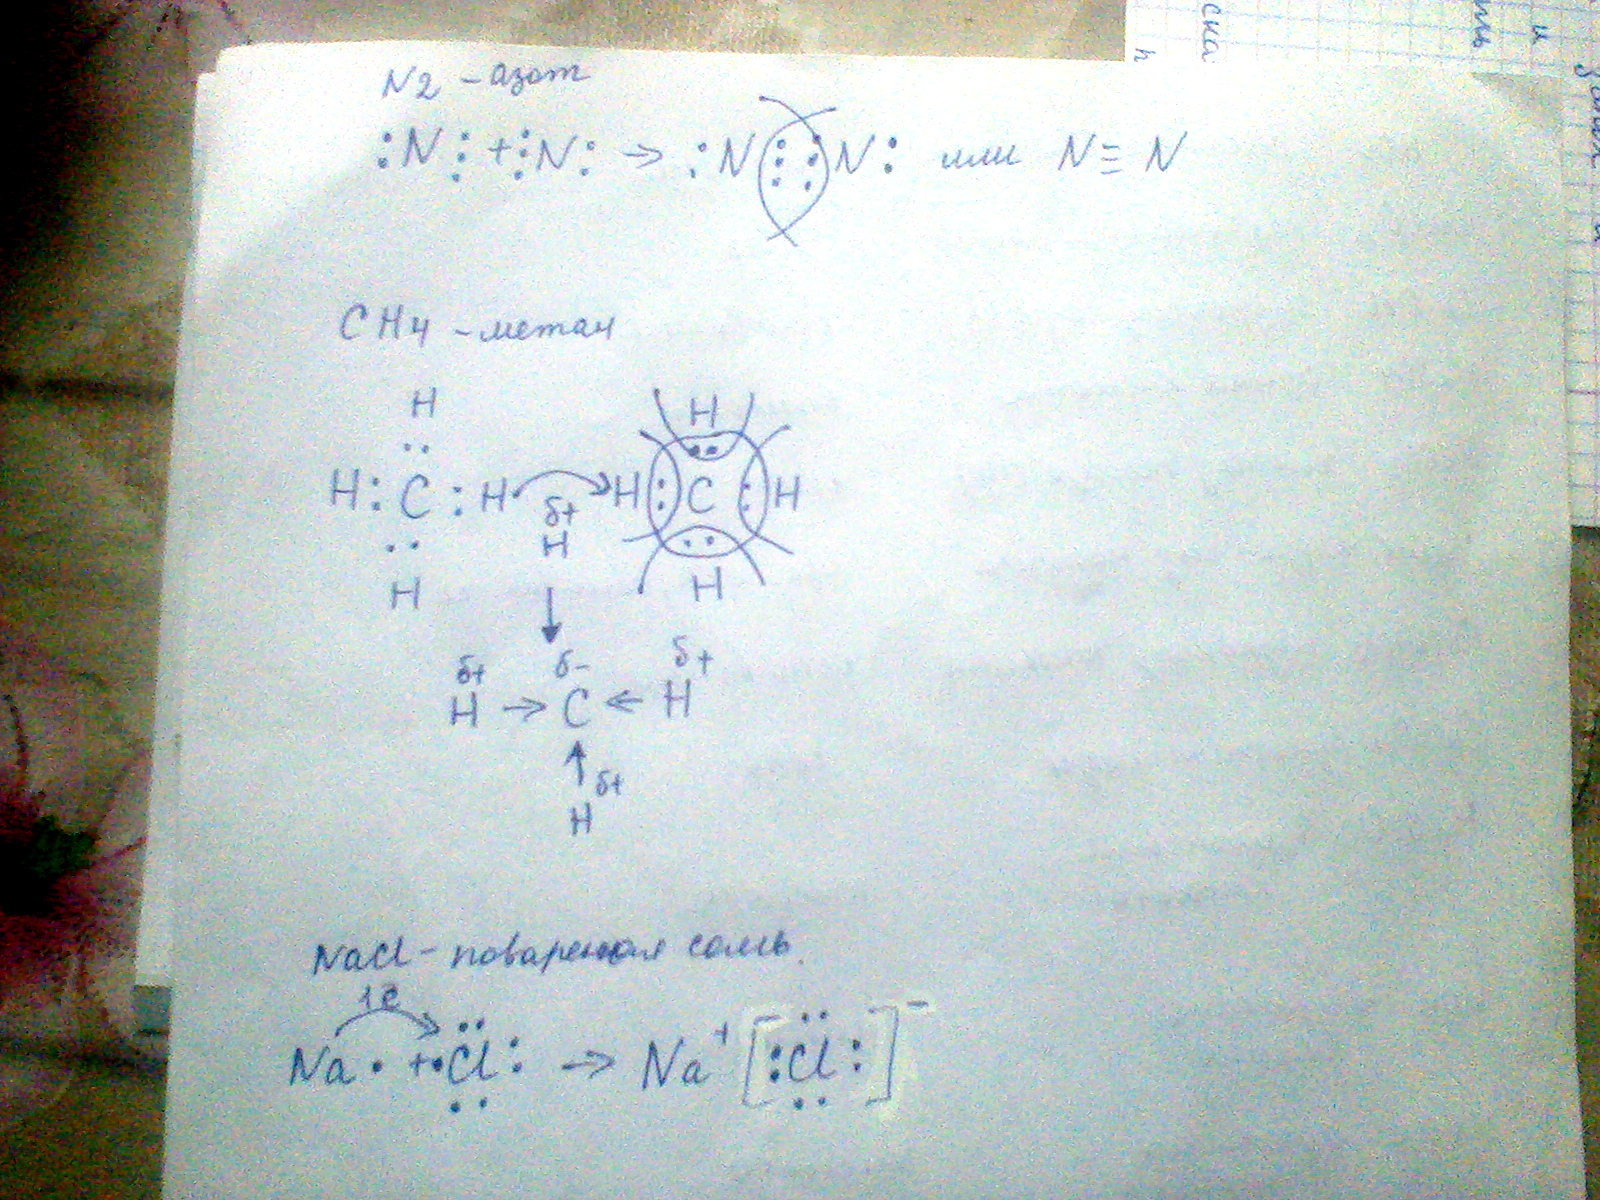 N2 – азот
:N⋮ + ⋮N: → :N⋮⋮N: или N≡N
CH4 – метан
H H
·· ··
H : C : H → H : C : H
·· ··
H H
δ+
H
↓
δ+ δ- δ+
H → C ← H
↑ δ+
H
NaCl – поваренная соль.
1ē
Na· + ·Cl: → Na⁺ [:Cl:]⁻
ска
и